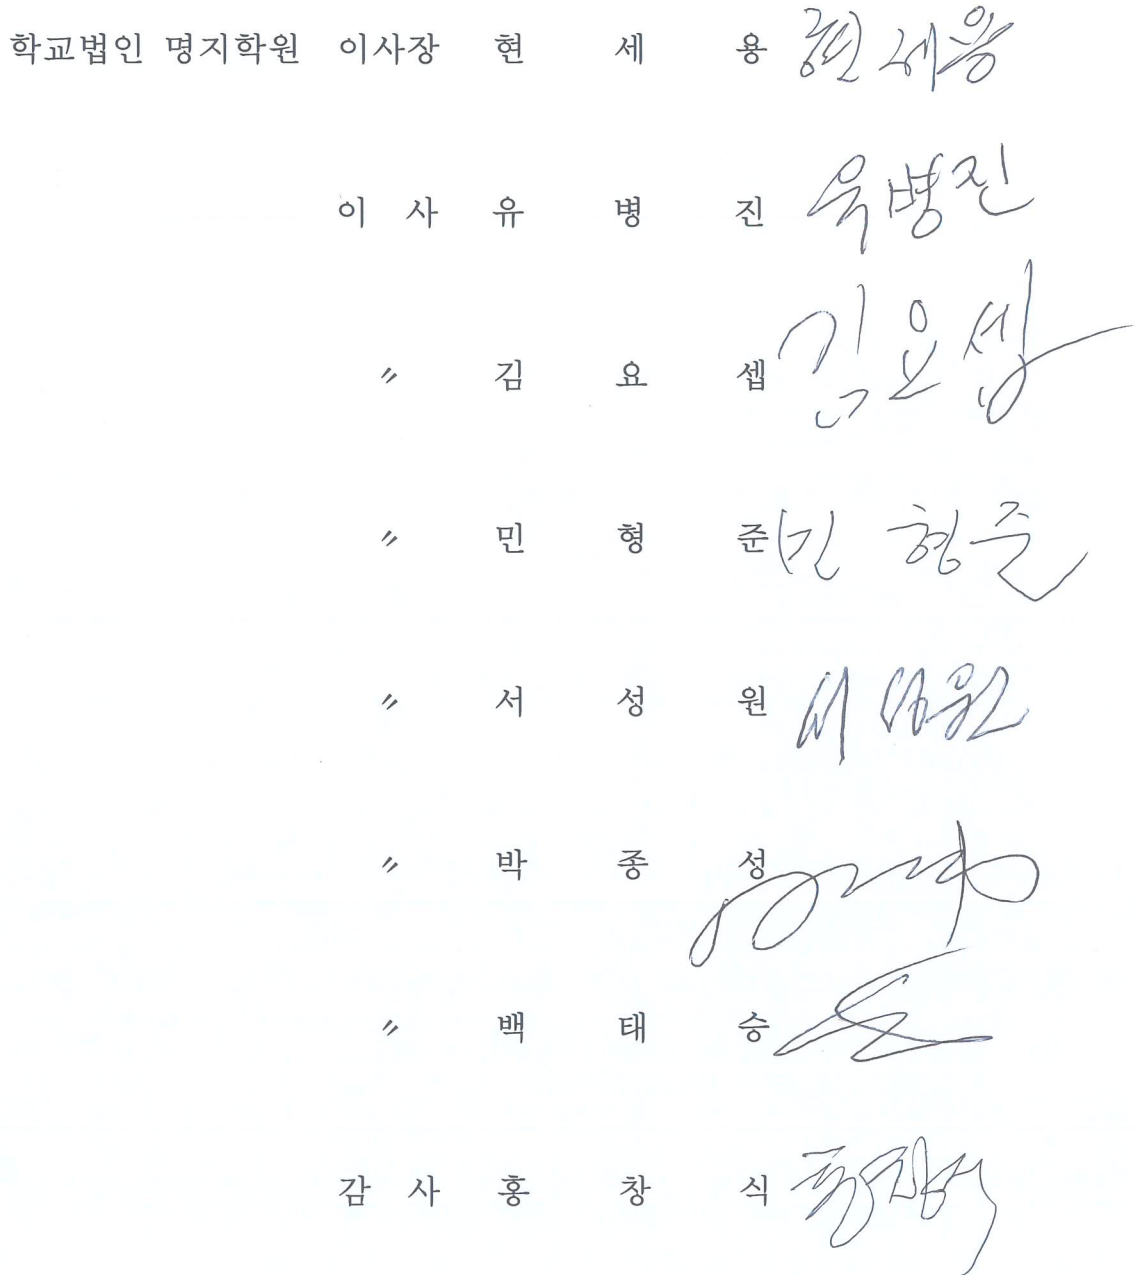 학교법인 명지학원 이사장 현 세 용 현세용
이 사 유 병 진 유병진
〃 김 요 셉 김요셉
〃 민 형 준 민 형준
〃 서 성 원 서 성원
〃 박 종 성
〃 백 태 승
감 사 홍 창 식